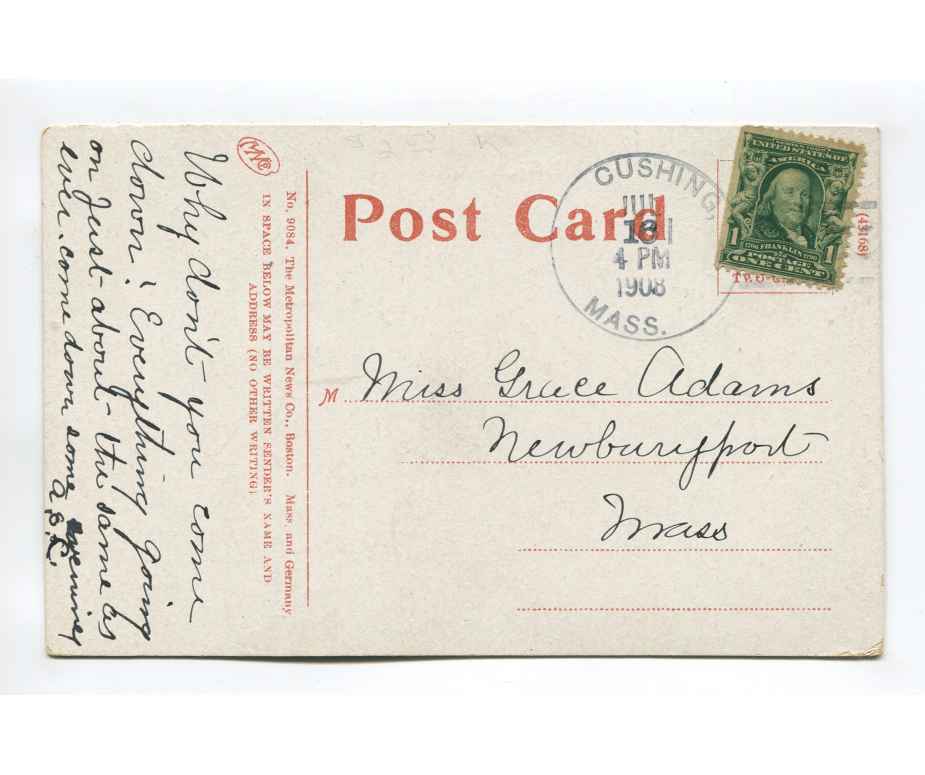 Post Card
CUSHING,
4 PM
1908
MASS.
UNITED STATES OF
AMERICA
1 1706 FRANKLIN 1790 1
POSTAGE
ONE CENT
(43168)
M Miss Grace Adams
Newburyport
Mass
No. 9084. The Metropolitan News Co., Boston. Mass, and Germany.
IN SPACE BELOW MAY BE WRITTEN SENDER'S NAME AND
ADDRESS (NO OTHER WRITING)
MNCo
Why don't you come
down? Everything going
on just about the same as
ever. Come down some evening